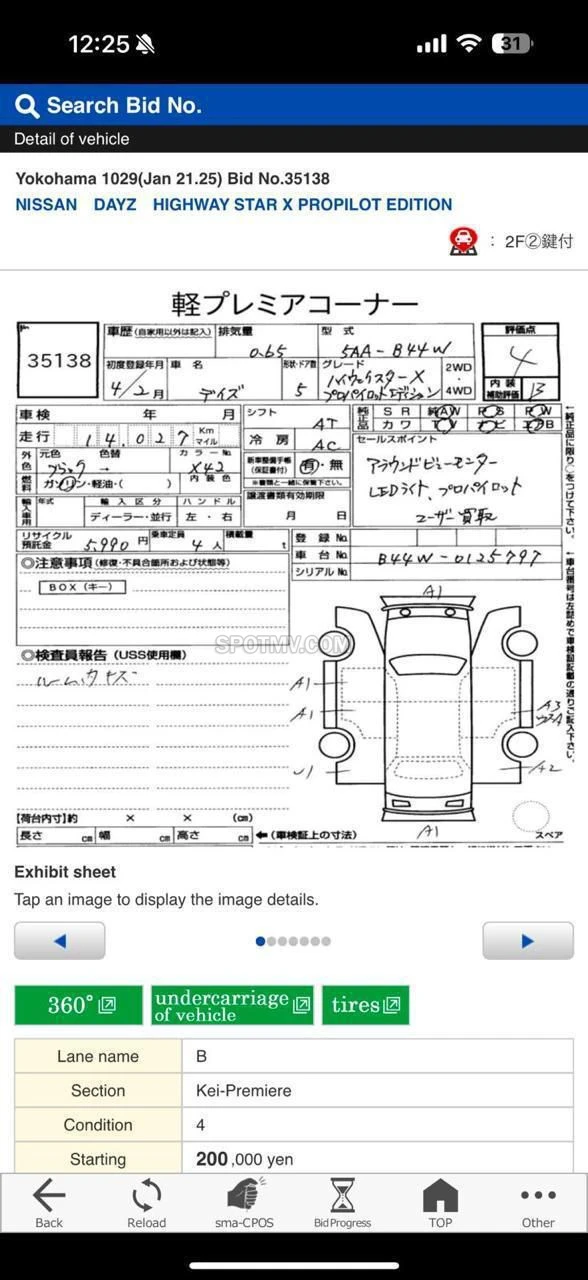 12:25
31
Search Bid No.
Detail of vehicle
Yokohama 1029(Jan 21.25) Bid No.35138
NISSAN DAYZ HIGHWAY STAR X PROPILOT EDITION
: 2F②鍵付
軽プレミアコーナー
35138
車歴(自家用以外は記入) 排気量 型式 評価点
0.65 5AA-B44W 4
初度登録年月 車名 形状・ドア数 グレード 2WD
4/2月 デイズ 5 ハイウェイスターX プロパイロットエディション 4WD
内装補助評価 B
車検 年 月 シフト AT 純正品 SR 純AW PS PW
走行 14,027 Km マイル 冷房 AC カワ TV ナビ
外色 元色 色替 カラーNo. セールスポイント
ブラック → X42 新車整備手帳(保証書付) 有・無 アラウンドビューモニター
燃料 ガソリン・軽油・( ) 内装色 LEDライト、プロパイロット
輸入車用 年式 輸入区分 ハンドル 譲渡書類有効期限 ユーザー買取
ディーラー・並行 左・右 月 日
リサイクル預託金 5,990円 乗車定員 4人 積載量 t 登録No.
車台No. B44W-0125797
シリアルNo.
◎注意事項(修復・不具合箇所および状態等)
BOX(キー)
A1
SPOTMV.COM
◎検査員報告(USS使用欄)
ルームウチキズ
A1
A1
A3
A2
U1
A1
スペア
【荷台内寸】約 × × (cm)
長さ cm 幅 cm 高さ cm ←(車検証上の寸法)
Exhibit sheet
Tap an image to display the image details.
360°
undercarriage of vehicle
tires
Lane name B
Section Kei-Premiere
Condition 4
Starting 200,000 yen
Back Reload sma-CPOS Bid Progress TOP Other